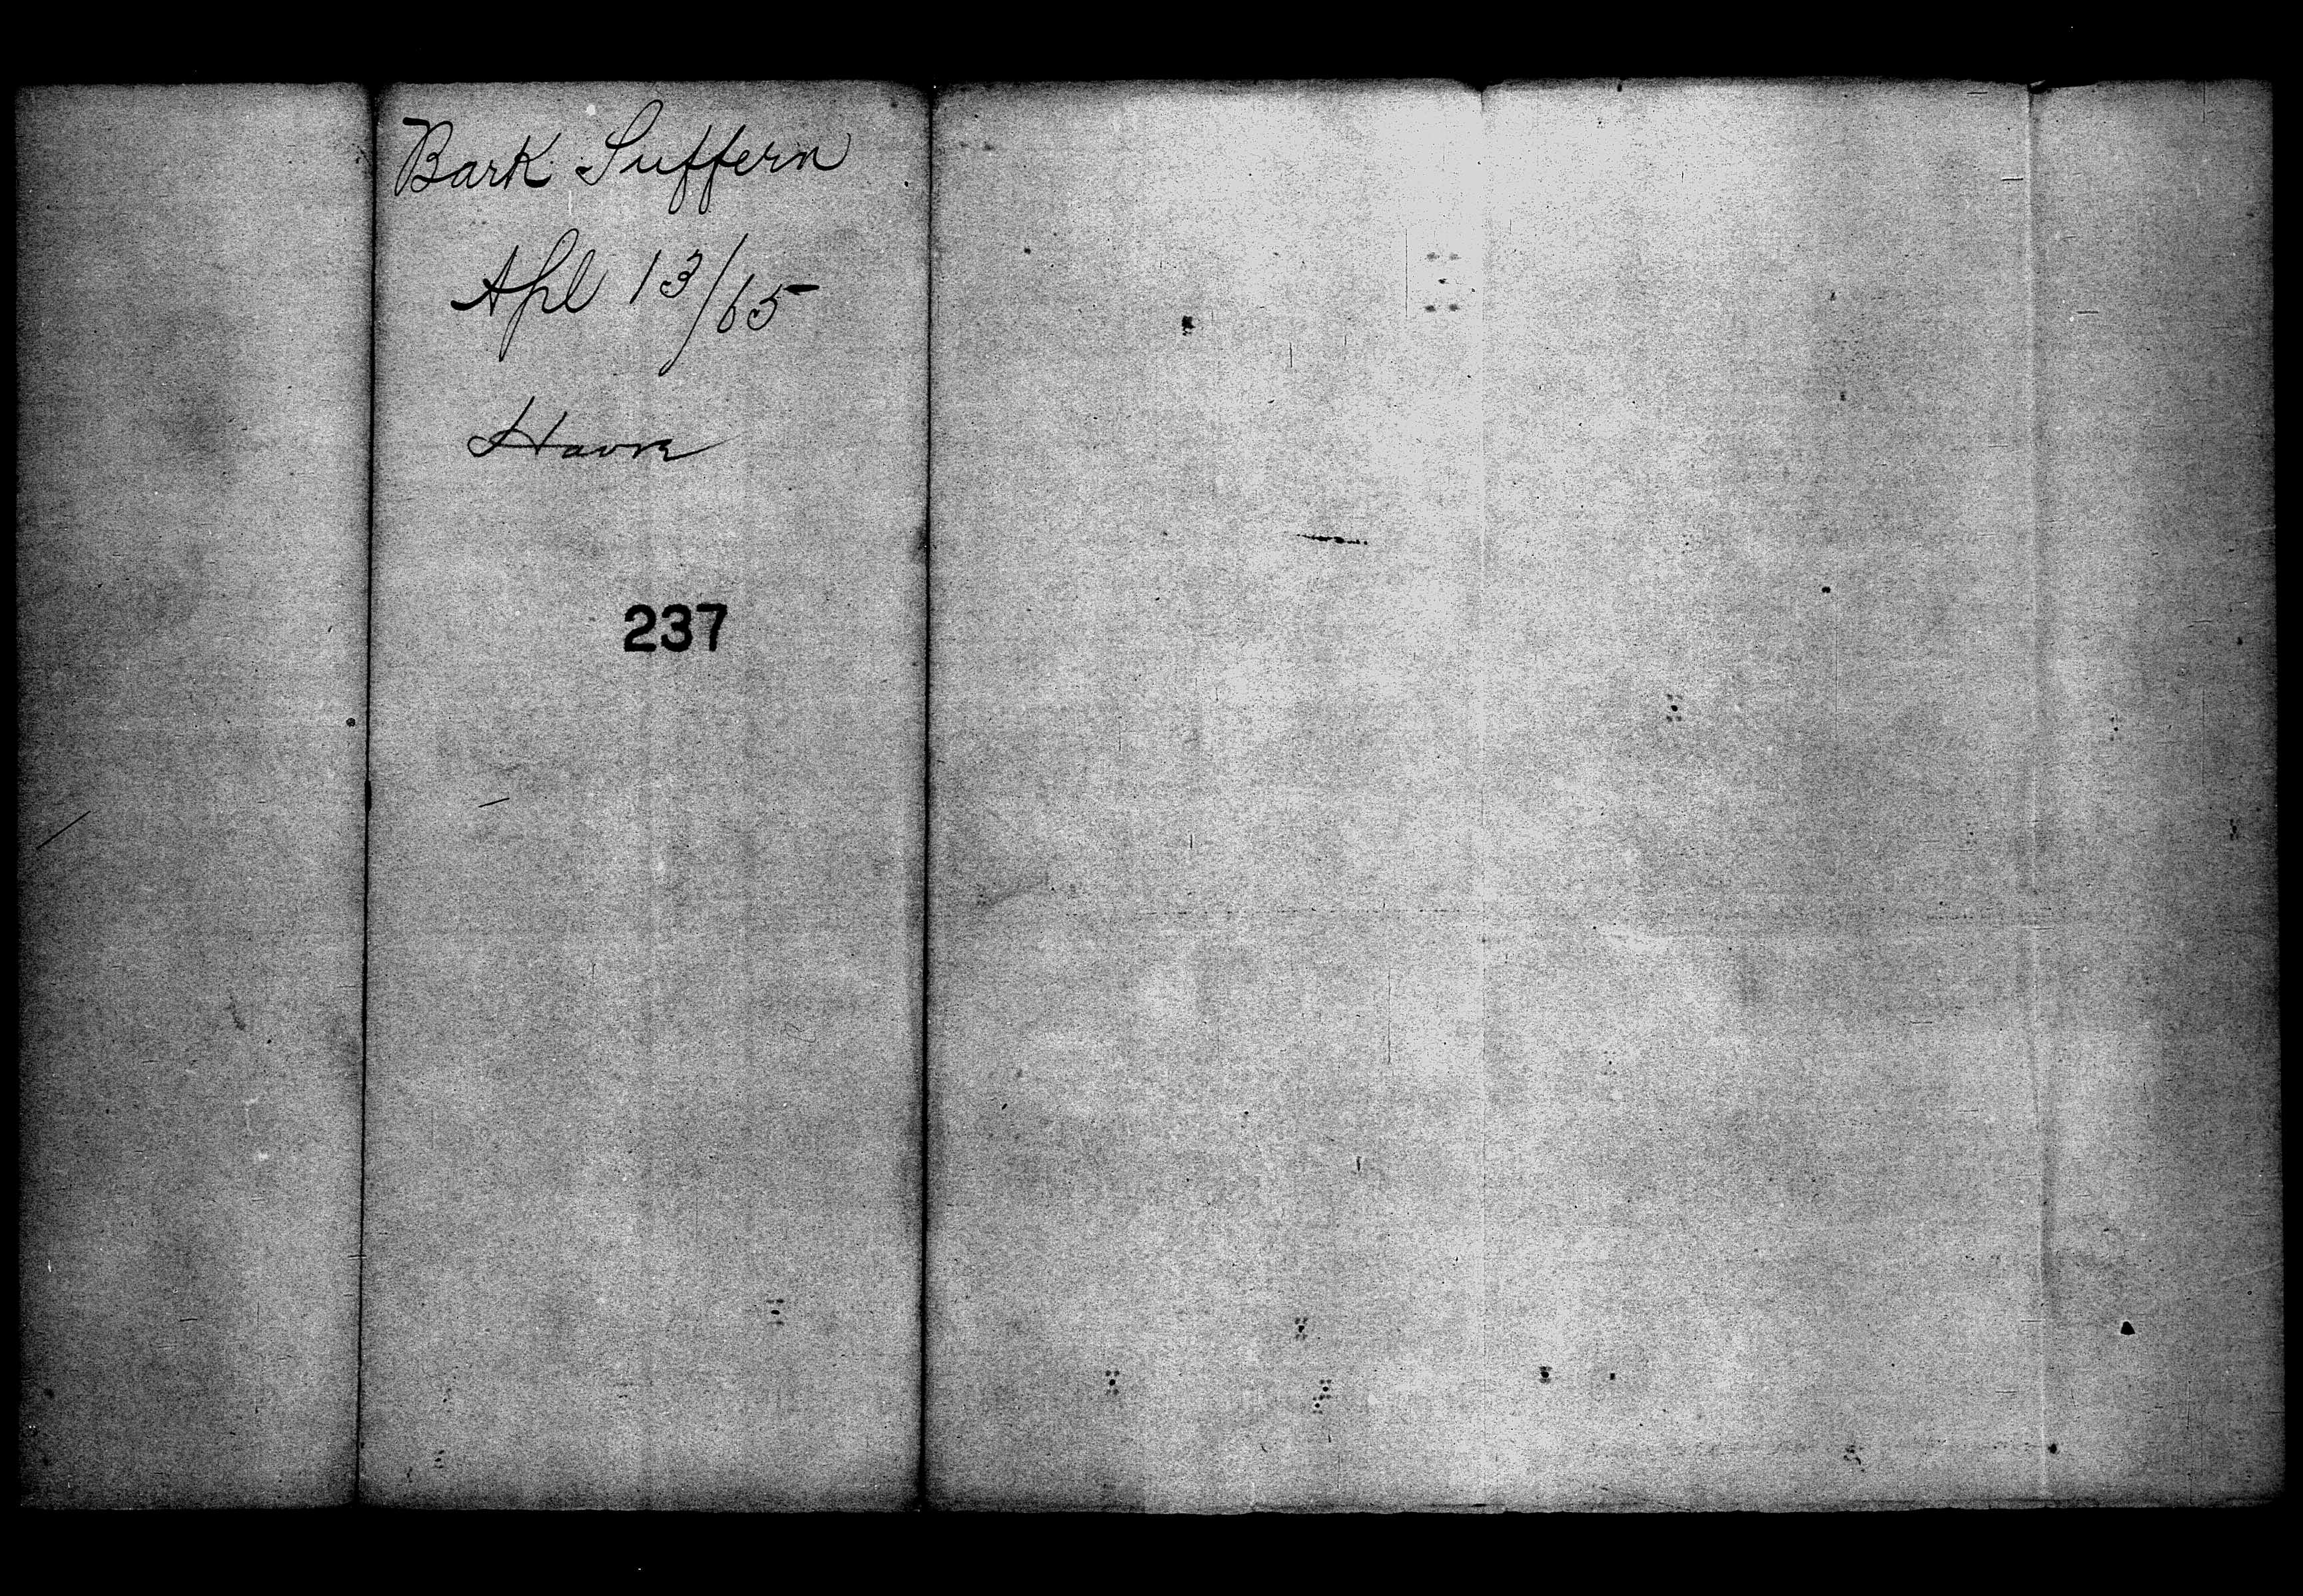 Bark Suffern
Apl 13/65
Havre
237